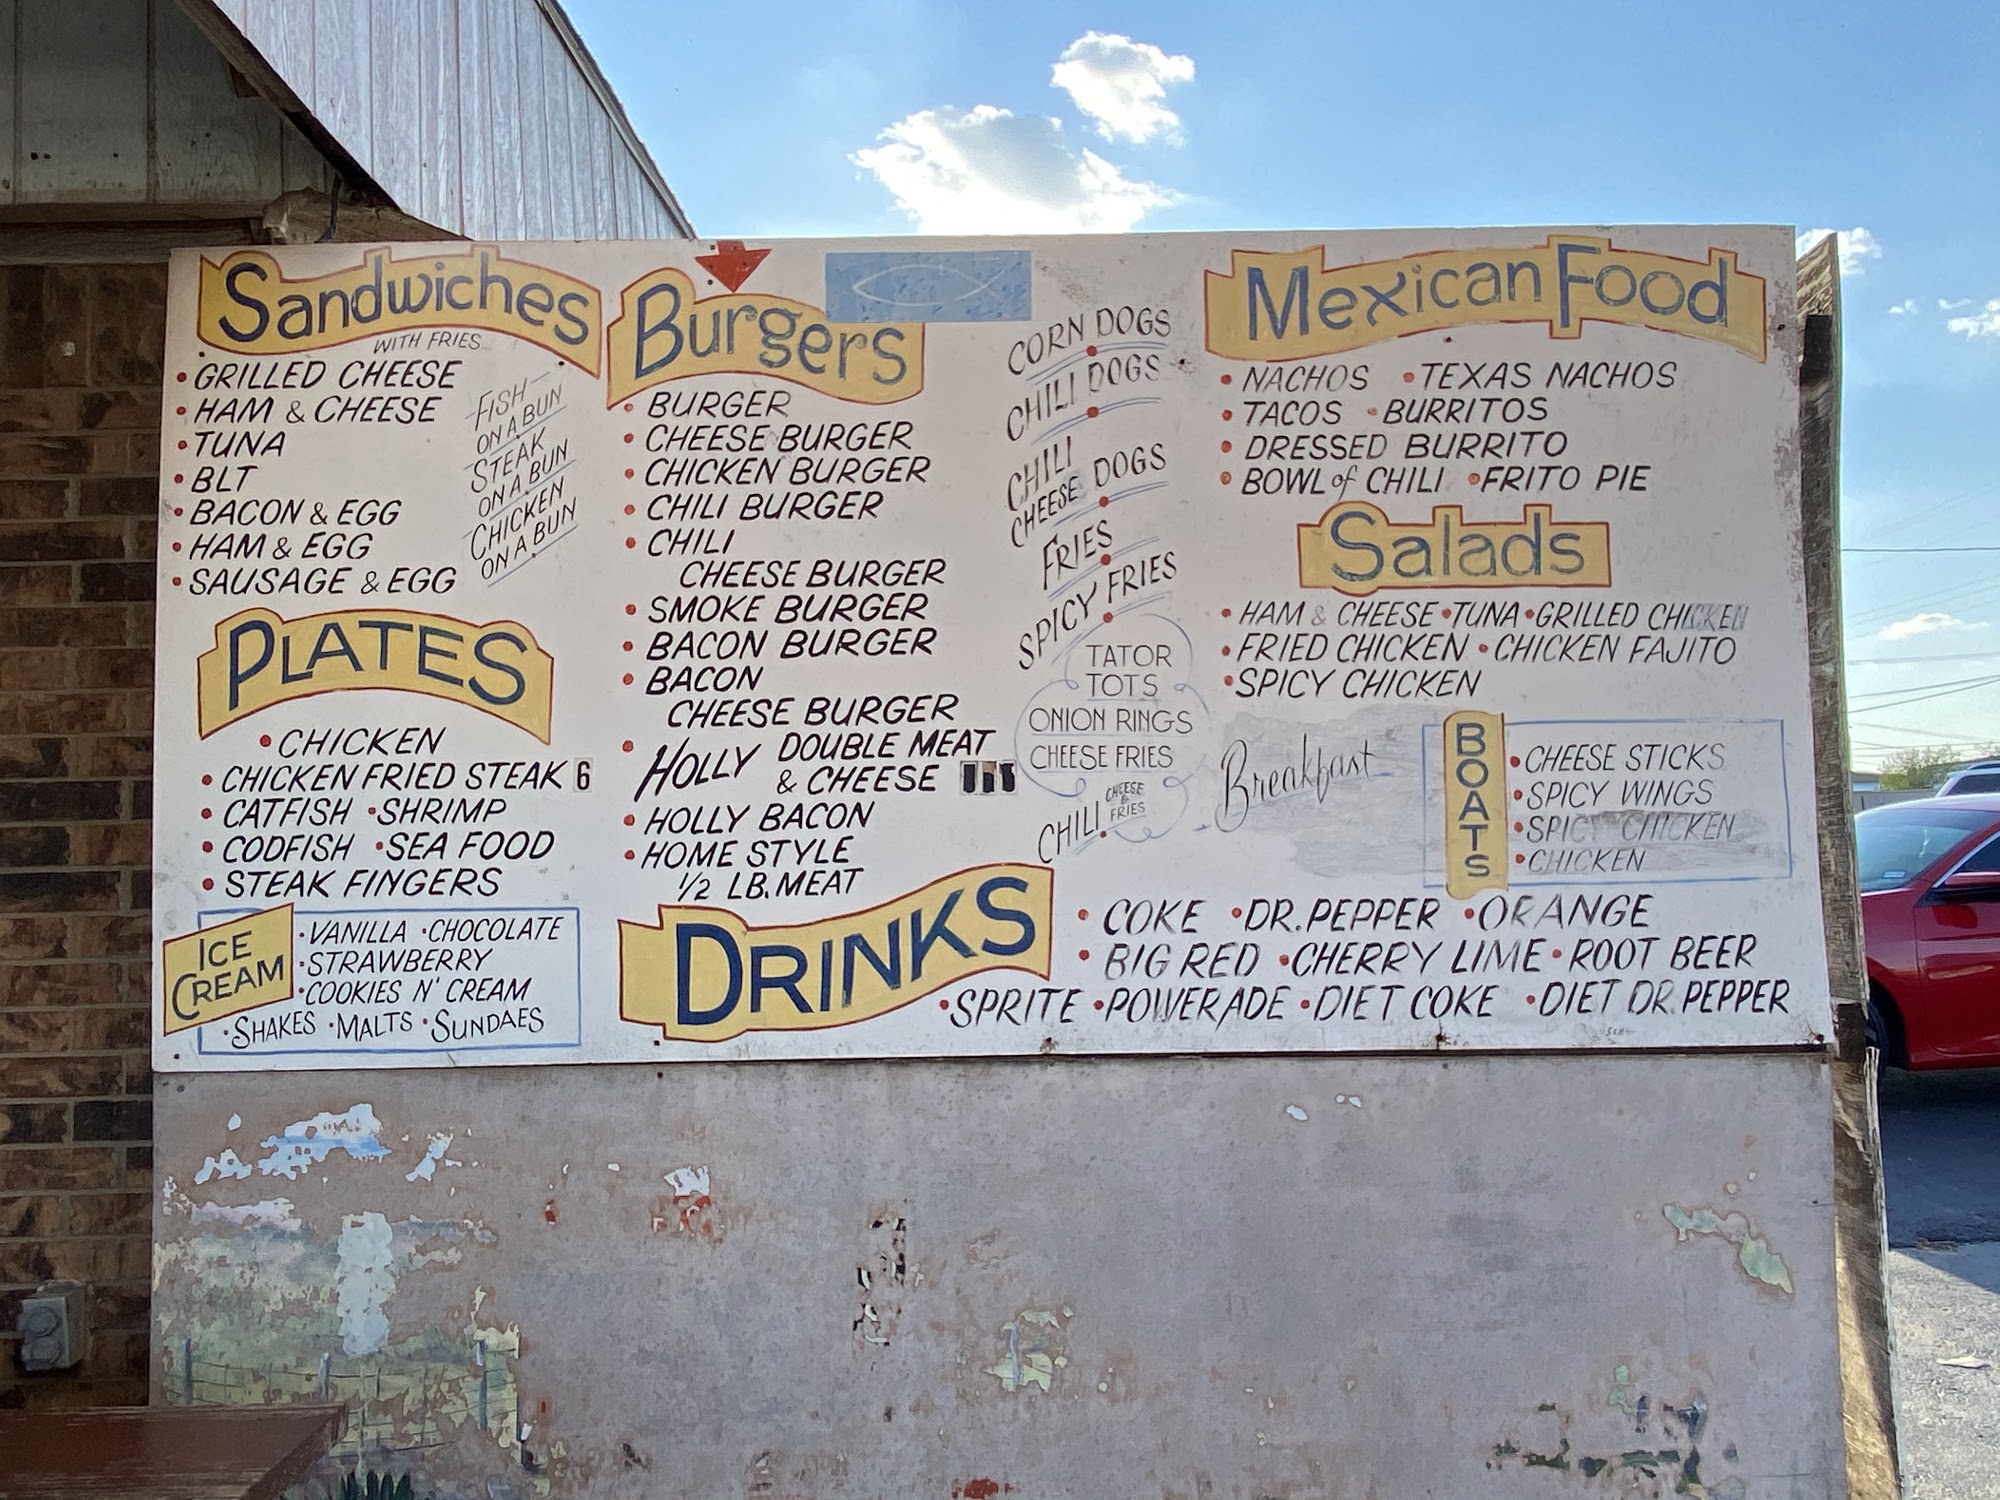 Sandwiches
WITH FRIES
• GRILLED CHEESE
• HAM & CHEESE
• TUNA
• BLT
• BACON & EGG
• HAM & EGG
• SAUSAGE & EGG
FISH
ON A BUN
STEAK
ON A BUN
CHICKEN
ON A BUN
PLATES
• CHICKEN
• CHICKEN FRIED STEAK 6
• CATFISH • SHRIMP
• CODFISH • SEA FOOD
• STEAK FINGERS
ICE
CREAM
• VANILLA • CHOCOLATE
• STRAWBERRY
• COOKIES N' CREAM
• SHAKES • MALTS • SUNDAES
Burgers
• BURGER
• CHEESE BURGER
• CHICKEN BURGER
• CHILI BURGER
• CHILI
CHEESE BURGER
• SMOKE BURGER
• BACON BURGER
• BACON
CHEESE BURGER
• HOLLY DOUBLE MEAT
& CHEESE
• HOLLY BACON
• HOME STYLE
1/2 LB. MEAT
CORN DOGS
CHILI DOGS
CHILI
CHEESE DOGS
FRIES
SPICY FRIES
TATOR
TOTS
ONION RINGS
CHEESE FRIES
CHILI CHEESE
& FRIES
Mexican Food
• NACHOS • TEXAS NACHOS
• TACOS • BURRITOS
• DRESSED BURRITO
• BOWL of CHILI • FRITO PIE
Salads
• HAM & CHEESE • TUNA • GRILLED CHICKEN
• FRIED CHICKEN • CHICKEN FAJITO
• SPICY CHICKEN
Breakfast
BOATS
• CHEESE STICKS
• SPICY WINGS
• SPICY CHICKEN
• CHICKEN
DRINKS
• COKE • DR. PEPPER • ORANGE
• BIG RED • CHERRY LIME • ROOT BEER
• SPRITE • POWERADE • DIET COKE • DIET DR. PEPPER